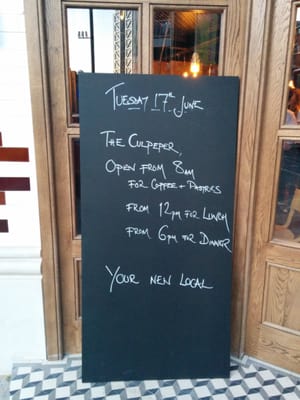 Tuesday 17th June
The Culpeper,
Open from 8am
for Coffee + Pastries
from 12pm for Lunch
from 6pm for Dinner
Your new local